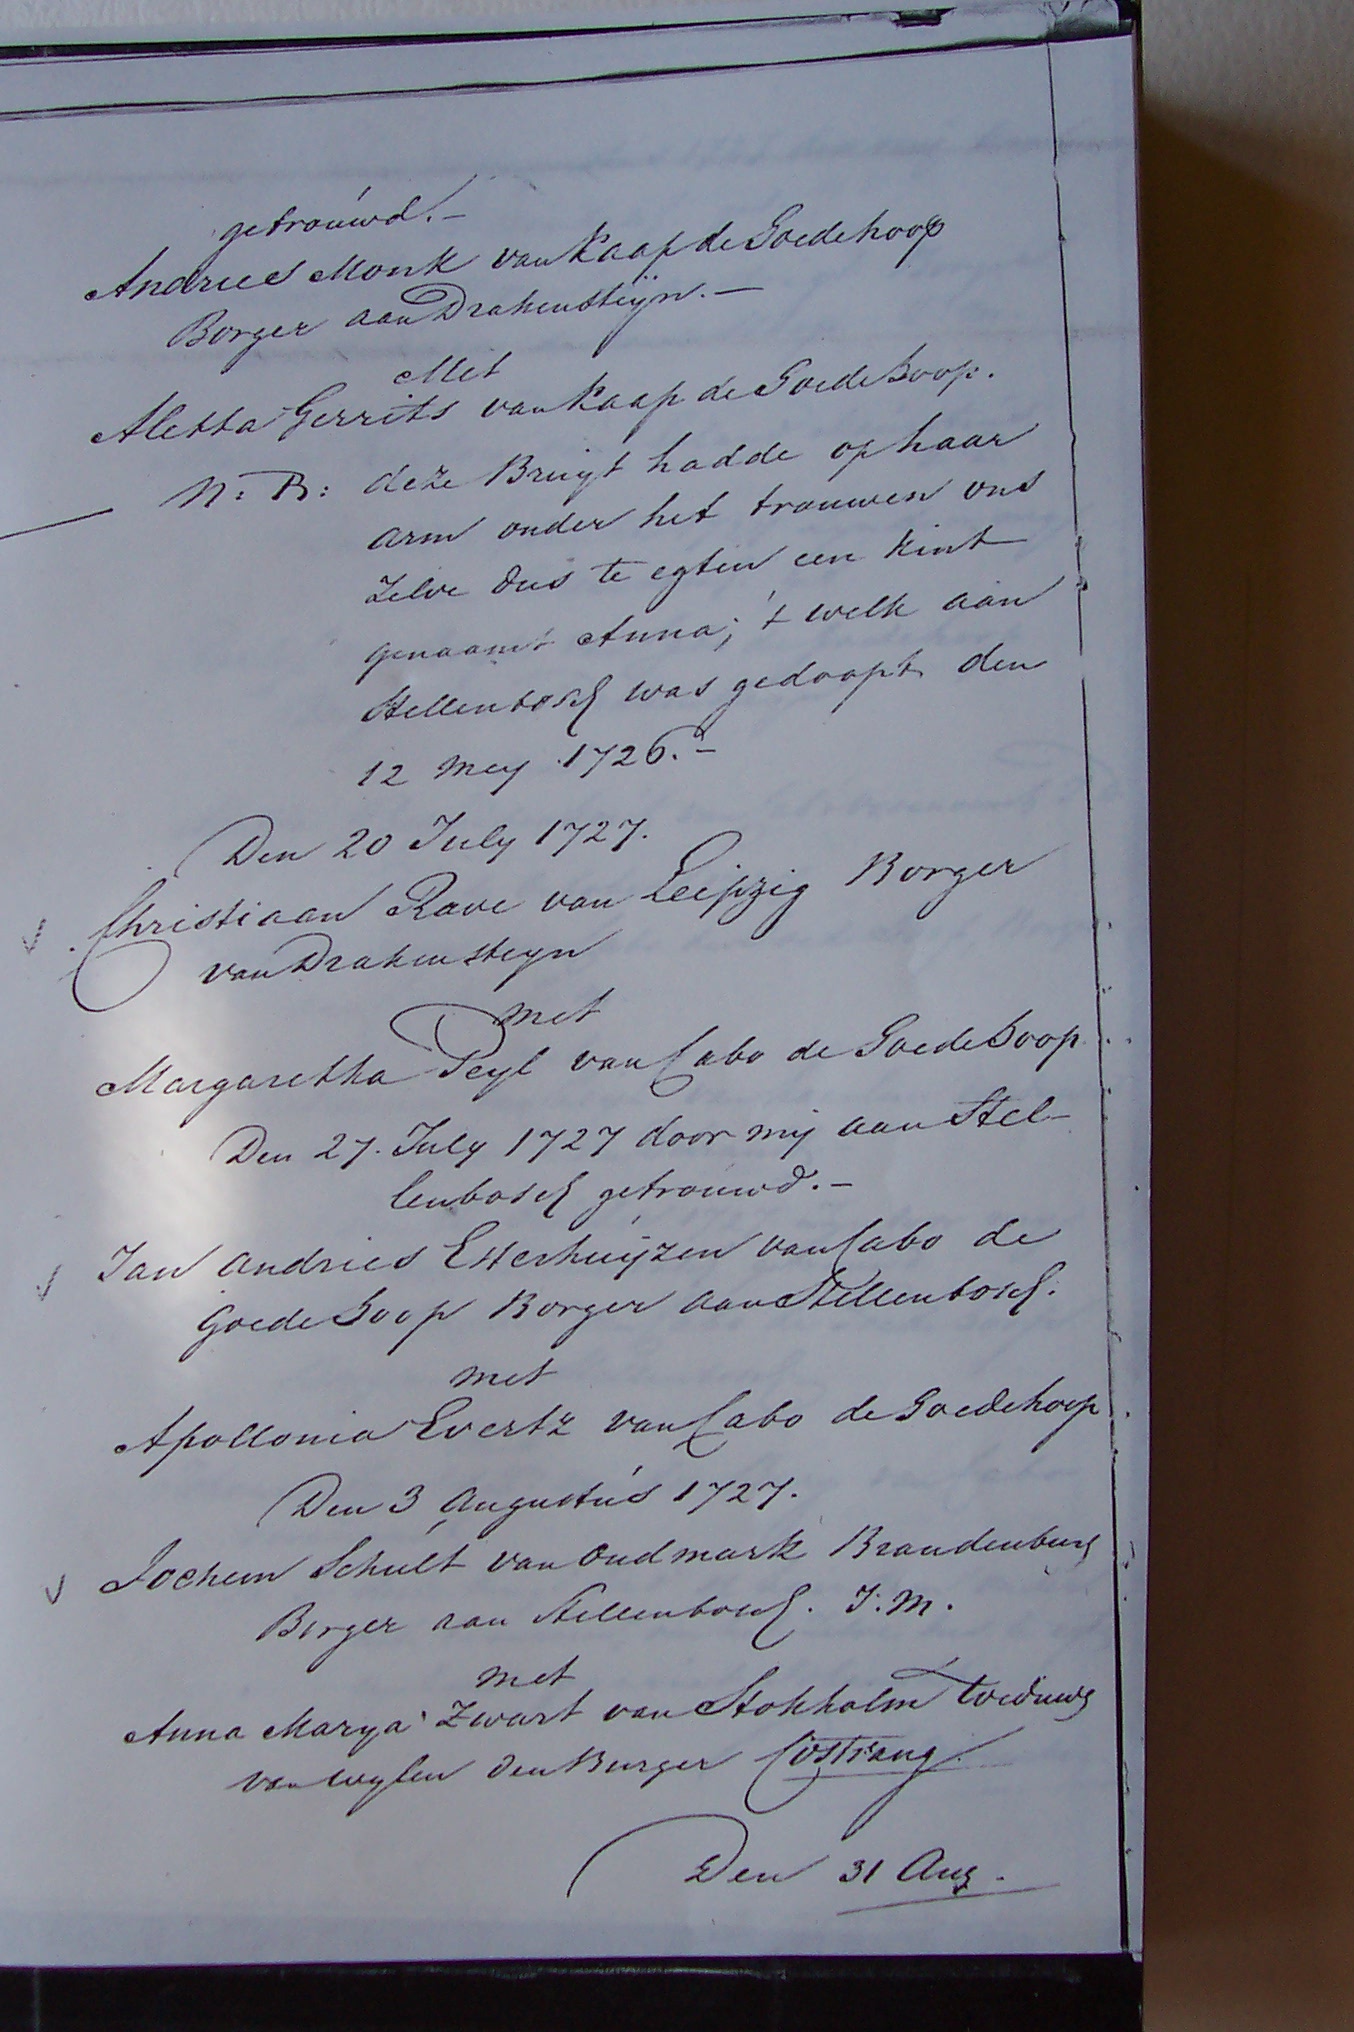 getrouwd.—
Andries Monk van Kaap de Goedehoop
Borger aan Drakensteÿn.—
Met
Aletta Gerrits van Kaap de Goede Hoop.
N: B: deze Bruyt hadde op haar
arm onder het trouwen ons
zelve dus te egten een kint
genaamt Anna; 't welk aan
Stellenbosch was gedoopt den
12 Mey 1726.—
Den 20 July 1727.
Christiaan Rave van Leipzig Borger
van Drakensteyn
met
Margaretha Peyl van Cabo de Goede Hoop
Den 27. July 1727 door mij aan Stel-
lenbosch getrouwd.—
Jan Andries Esterhuijzen van Cabo de
Goede Hoop Borger aan Stellenbosch.
met
Apollonia Evertz van Cabo de Goedehoop
Den 3 Augustus 1727.
Jochem Schult van Oudmark Brandenburg
Borger aan Stellenbosch. J: M.
met
Anna Marya Zwart van Stokholm Weduwe
van wylen den Burger
Den 31 Aug.